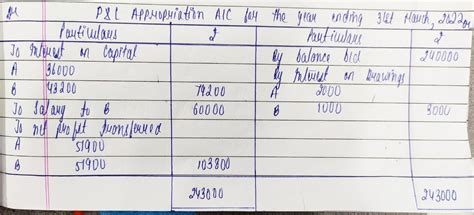 Dr P&L Appropriation A/C for the year ending 31st March, 2022 Cr
Particulars ₹ Particulars ₹
To Interest on Capital By balance b/d 240000
A 36000 By Interest on Drawings
B 43200 79200 A 2000
To Salary to B 60000 B 1000 3000
To net profit transferred
A 51900
B 51900 103800
243000 243000